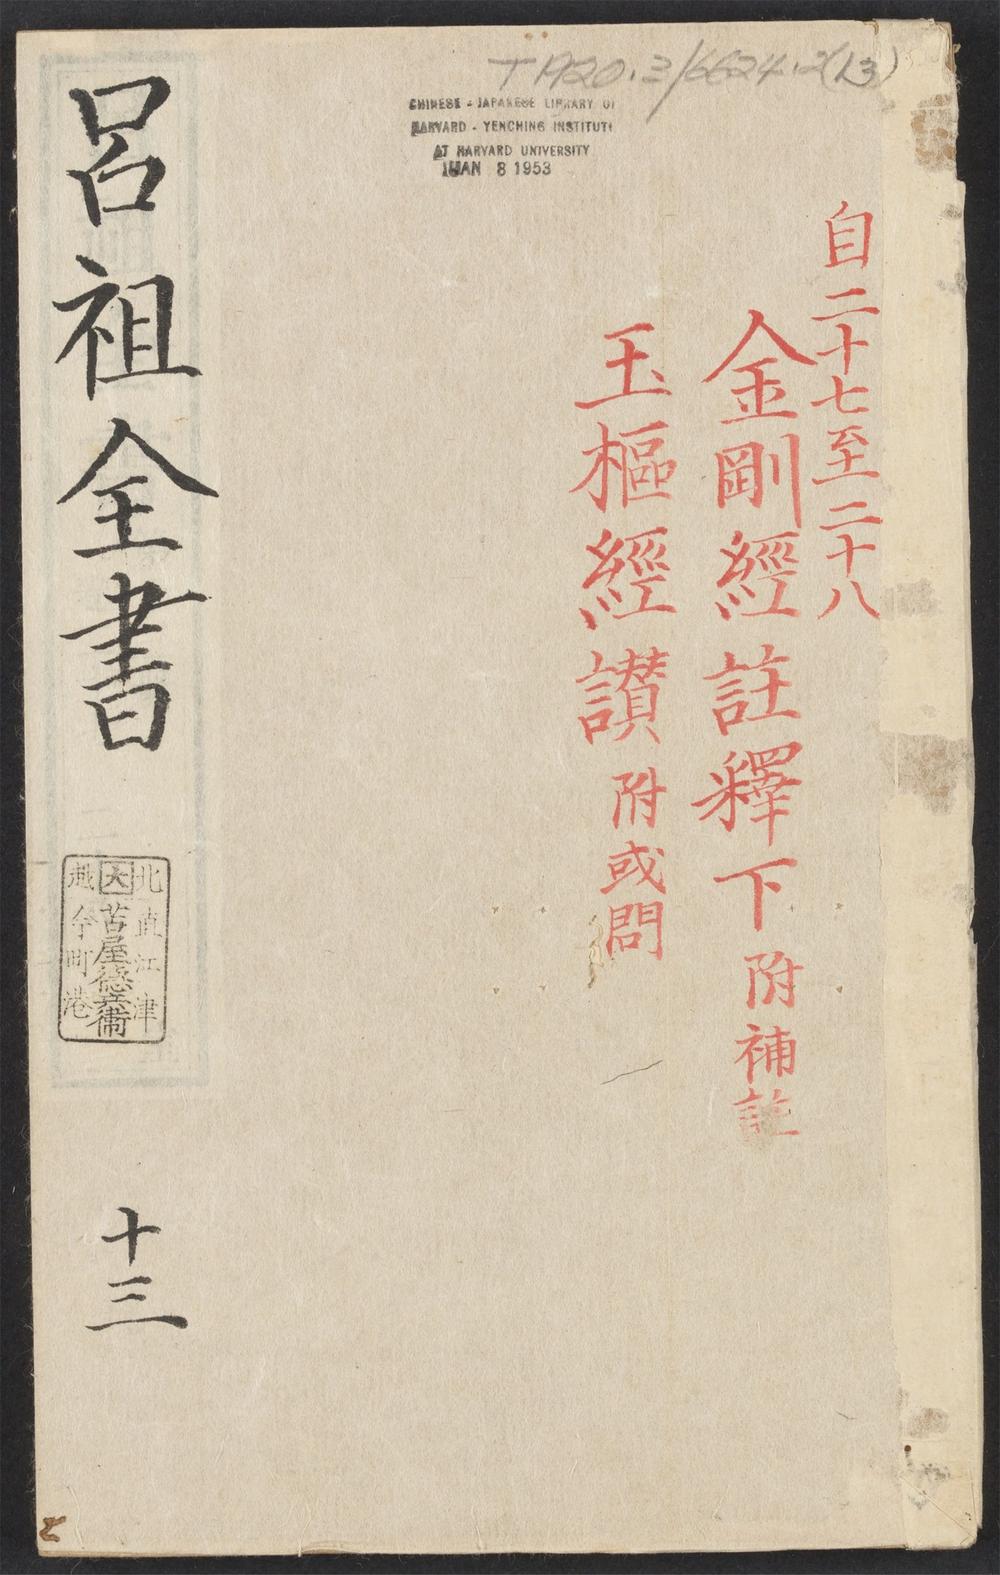 T 1920.3/6624.2(13)
CHINESE - JAPANESE LIBRARY OF
HARVARD - YENCHING INSTITUTE
AT HARVARD UNIVERSITY
JAN 8 1953
自二十七至二十八
金剛經註釋下 附補註
玉樞經讃 附或問
呂祖全書
十三
北直江津
大 苫屋德兵衞
越今町港